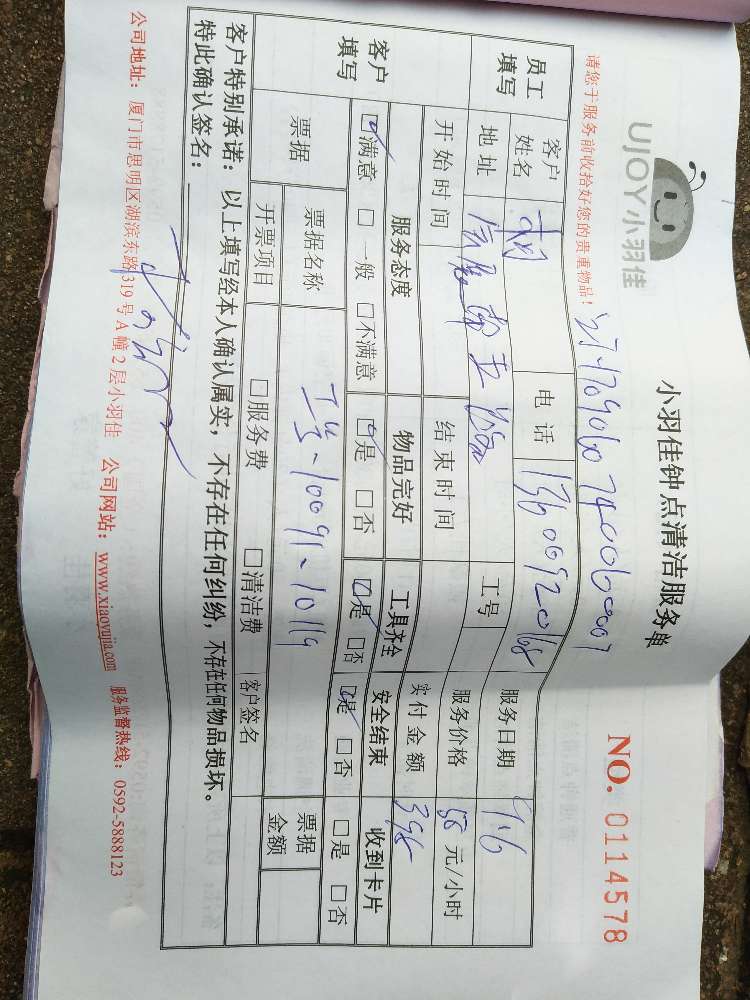 UJOY小羽佳
小羽佳钟点清洁服务单
NO. 0114578
请您于服务前收拾好您的贵重物品!
员工填写
客户姓名
电话
13600920168
服务日期
地址
工号
服务价格 58 元/小时
开始时间
结束时间
实付金额 398
客户填写
服务态度 物品完好 工具齐全 安全结束 收到卡片
☑满意 □一般 □不满意 ☑是 □否 ☑是 □否 ☑是 □否 □是 □否
票据
票据名称
票据金额
开票项目
□服务费 □清洁费
客户签名
客户特别承诺:以上填写经本人确认属实,不存在任何纠纷,不存在任何物品损坏。
特此确认签名:
公司地址:厦门市思明区湖滨东路319号A幢2层小羽佳 公司网站:www.xiaoyujia.com 服务监督热线:0592-5888123